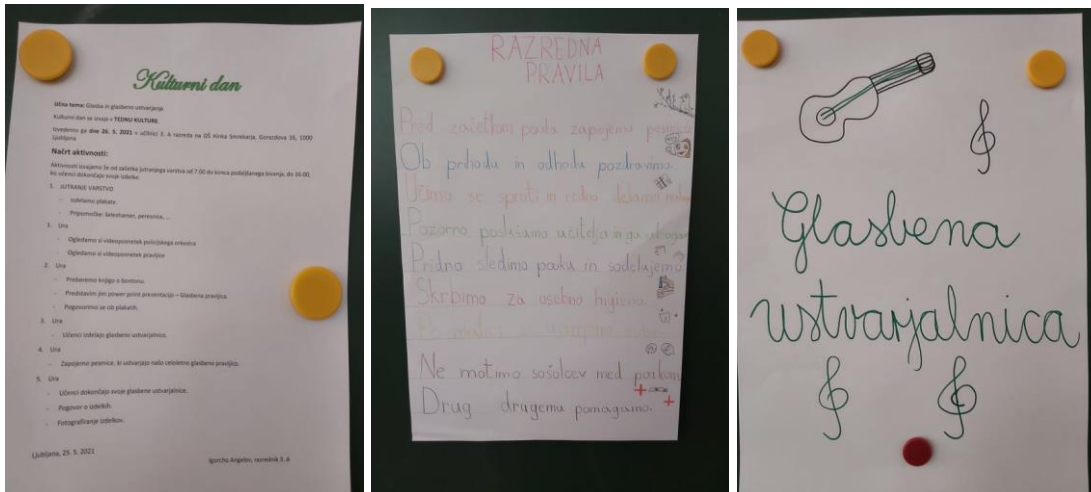 Kulturni dan
Učna tema: Glasba in glasbeno ustvarjanje.
Kulturni dan se izvaja v TEDNU KULTURE.
Izvedemo ga dne 26. 5. 2021 v učilnici 3. A razreda na OŠ Hinka Smrekarja, Gorazdova 16, 1000
Ljubljana
Načrt aktivnosti:
Aktivnosti izvajamo že od začetka jutranjega varstva od 7.00 do konca podaljšanega bivanja, do 16.00,
ko učenci dokončajo svoje izdelke.
1. JUTRANJE VARSTVO
- Izdelamo plakate.
- Pripomočke: šeleshamer, peresnica, ...
1. Ura
- Ogledamo si videoposnetek policijskega orkestra
- Ogledamo si videoposnetek pravljice
2. Ura
- Preberemo knjigo o bontonu.
- Predstavim jim power point prezentacijo – Glasbena pravljica.
- Pogovorimo se ob plakatih.
3. Ura
- Učenci izdelajo glasbene ustvarjalnice.
4. Ura
- Zapojemo pesmice, ki ustvarjajo našo celoletno glasbeno pravljico.
5. Ura
- Učenci dokončajo svoje glasbene ustvarjalnice.
- Pogovor o izdelkih.
- Fotografiranje izdelkov.
Ljubljana, 25. 5. 2021
Igorcho Angelov, razrednik 3. A
RAZREDNA
PRAVILA
Pred začetkom pouka zapojemo
Ob prihodu in odhodu pozdravimo.
Učimo se sproti in redno delamo
Pozorno poslušamo učitelja in ga
Pridno sledimo pouku in sodelujemo.
Skrbimo za osebno higieno.
Ne motimo sošolcev med poukom.
Drug drugemu pomagamo.
Glasbena
ustvarjalnica